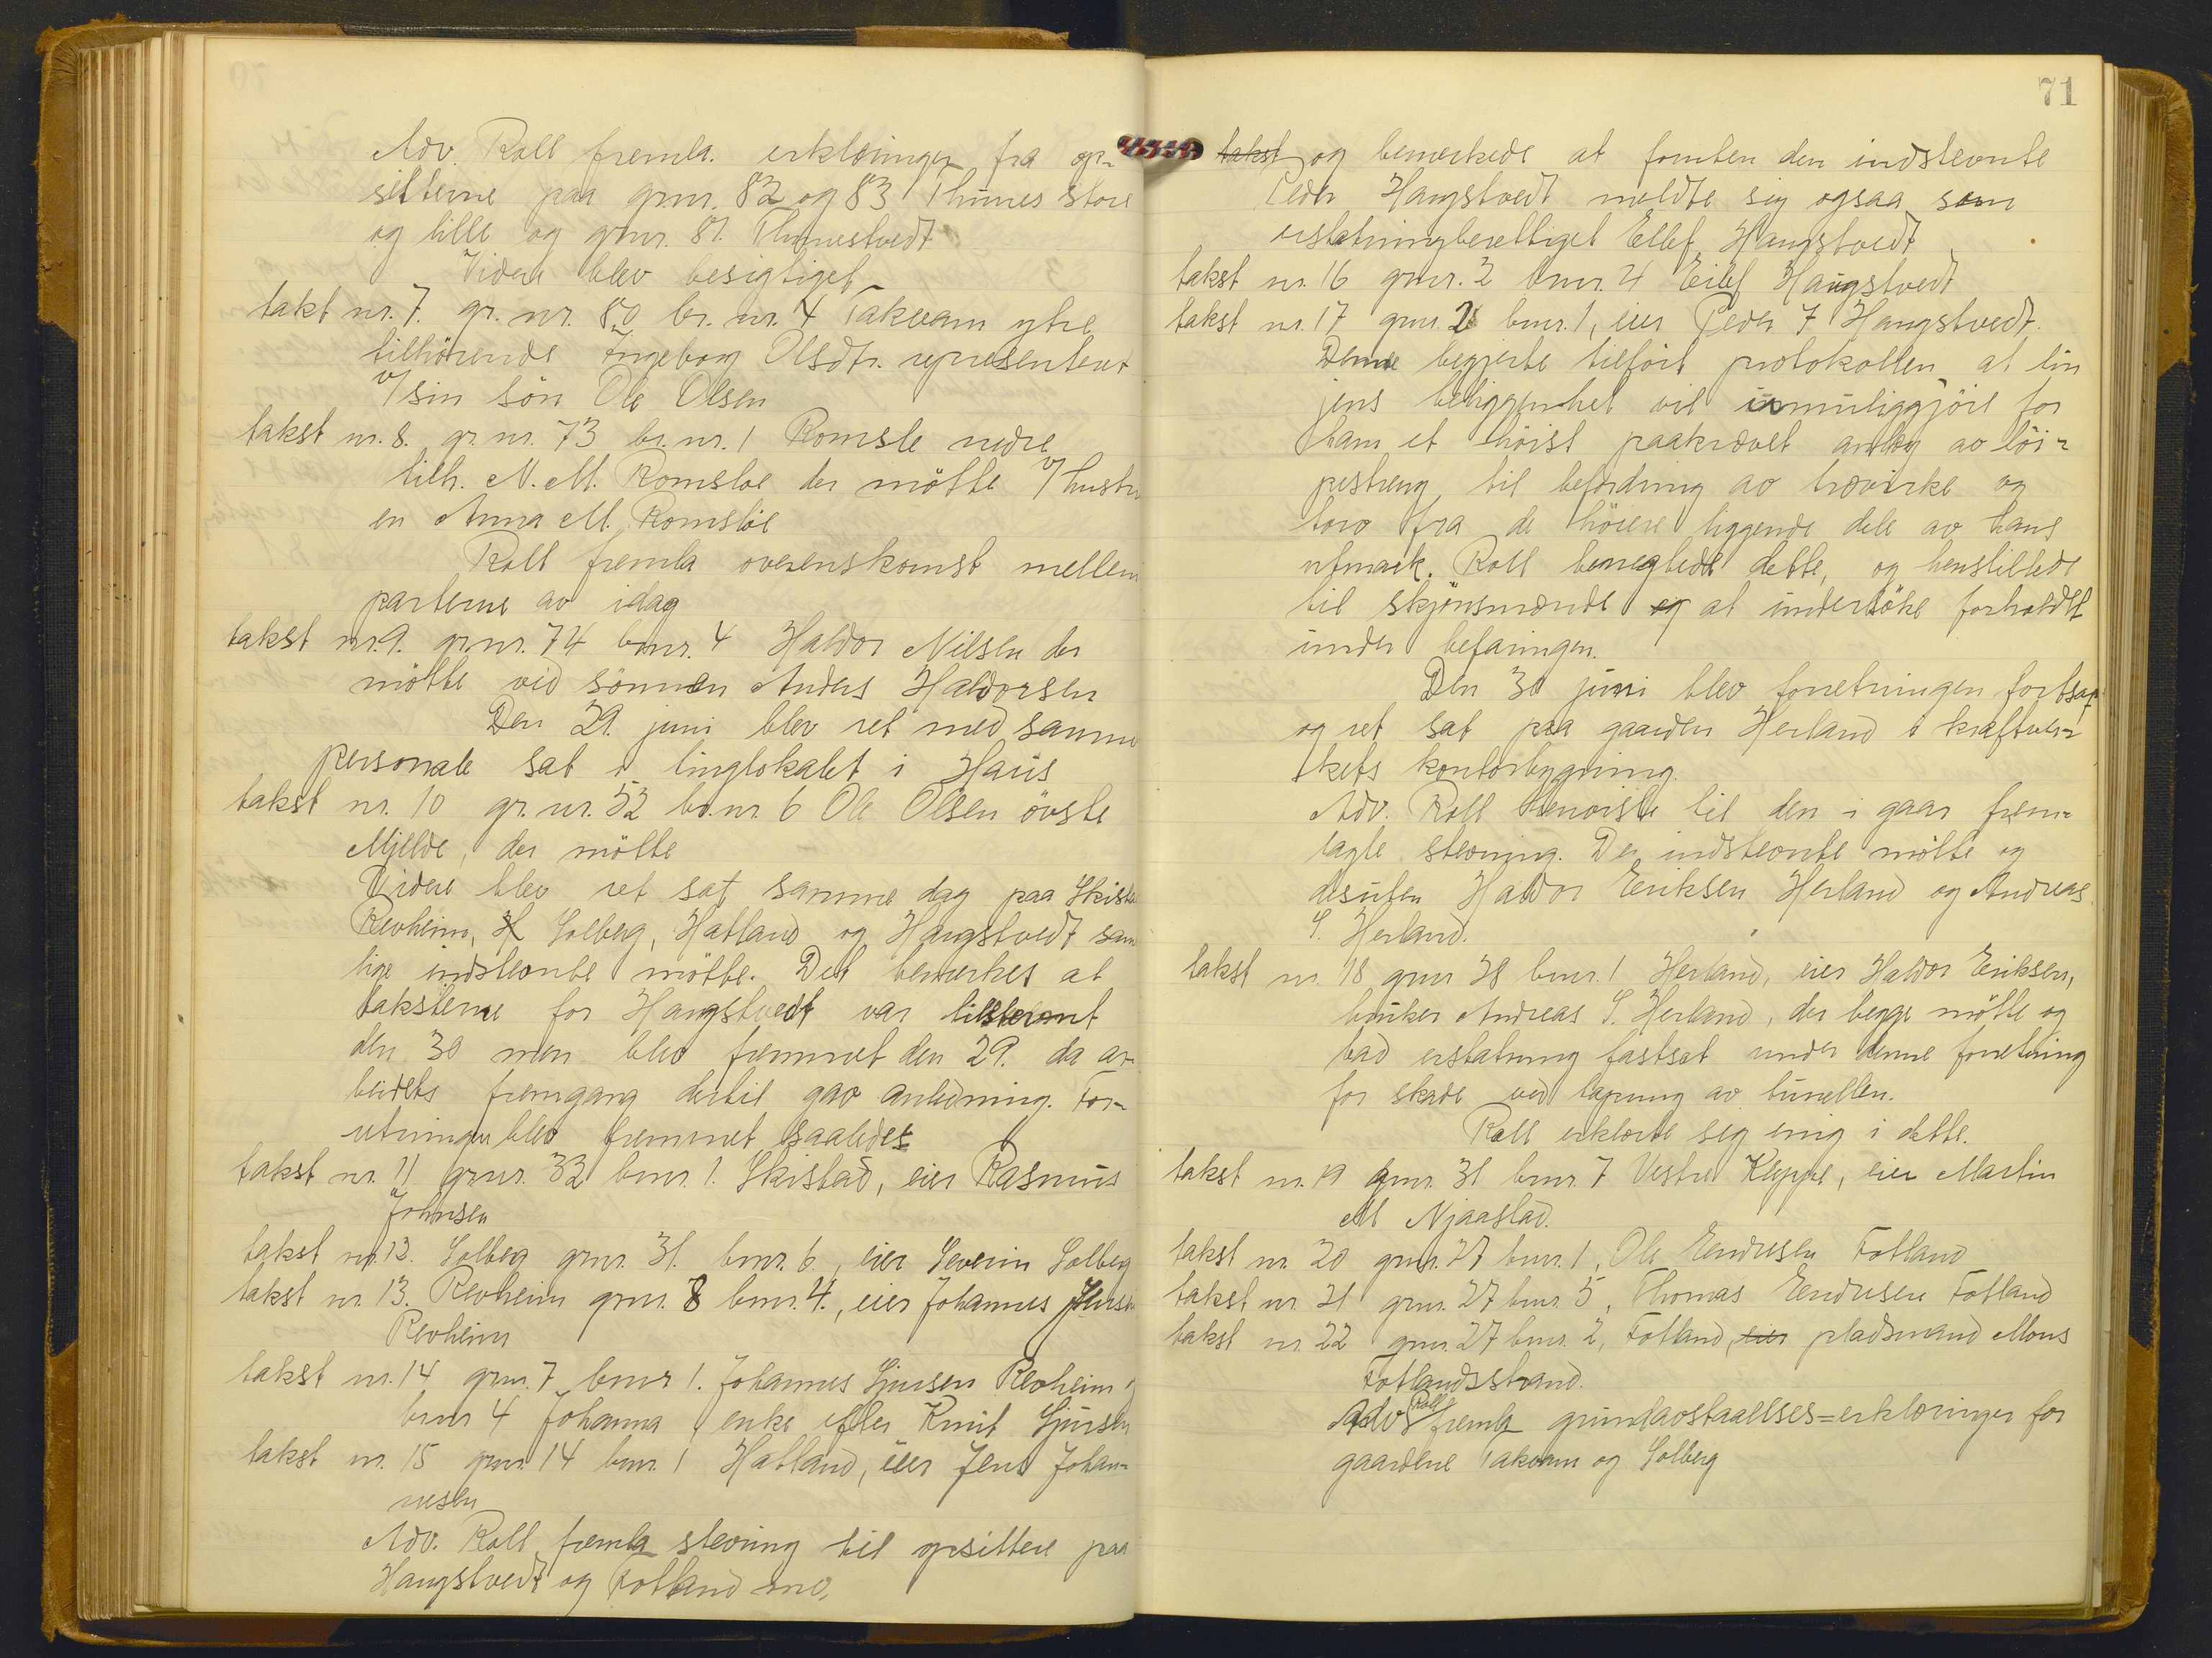 Adv. Roll fremla. erklæringer fra op-
sitterne paa grnr. 82 og 83 Thunes store
og lille og grnr. 81. Thunestvedt
Videre blev besigtiget
takt nr. 7. gr. nr. 80 br. nr. 4 Takvam ytre
tilhörende Ingeborg Olsdtr. representert
v/sin sön Ole Olsen
takst nr. 8. gr. nr. 73 br. nr. 1 Romsle nedre
tilh. N. M. Romsloe der mötte v/hustru
en Anna M. Romslöe
Roll fremla overenskomst mellem
parterne av idag
takst nr. 9. grnr. 74 bnr. 4 Haldor Nilsen der
mötte ved sönnen Anders Haldorsen
Den 29. juni blev ret med samme
personale sat i tinglokalet i Haus
takst nr. 10 gr. nr. 52 br. nr. 6 Ole Olsen övste
Mjelde, der mötte
Videre blev ret sat samme dag paa Skista
Revheim, H Solberg, Hatland og Haugstvedt sam
lige indstevnte mötte. Det bemerkes at
taksterne for Haugstvedt var tilstevnt
den 30 men blev fremmet den 29. da ar-
beidets fremgang dertil gav anledning. For-
retningen blev fremmet saaledes
takst nr. 11 grnr. 32 bnr. 1. Skistad, eier Rasmus
Johnsen
takst nr. 12. Solberg grnr. 31. bnr. 6., eier Severin Solberg
takst nr. 13. Revheim grnr. 8 bnr. 4., eier Johannes
Revheim
takst nr. 14 grnr. 7 bnr 1. Johannes Sjursen Revheim
bnr 4 Johanna enke efter Knut Sjursen
takst nr. 15 grnr. 14 bnr. 1 Hatland, eier Jens Johan-
nesen
Adv. Roll fremla stevning til opsittere paa
Haugstvedt og Fotland mv.
71
takst og bemerkede at foruten den indstevnte
Peder Haugstvedt meldte sig ogsaa som
erstatningberettiget Ellef Haugstvedt
takst nr. 16 grnr. 2 bnr. 4 Eilef Haugstvedt
takst nr. 17 grnr. 2 bnr. 1, eier Peder 7 Haugstvedt.
Denne begjerte tilfört protokollen, at lin
jens beliggenhet vil umuliggjöre for
ham et höist paakrævet anlæg av löi-
pestreng til befordring av trævirke og
torv fra de höiere liggende dele av hans
utmark. Roll benegtede dette, og henstillede
til skjönsmænde og at undersöke forholdet
under befaringen.
Den 30 juni blev forretningen fortsat
og ret sat paa gaarden Herland i kraftver-
kets kontorbygning.
Adv. Roll henviste til den i gaar frem-
lagte stevning. De indstevnte mötte og
desuten Haldor Eriksen Herland og Andreas
S. Herland.
takst nr. 18 grnr 28 bnr. 1 Herland, eier Haldor Eriksen,
bruker Andreas S. Herland, der begge mötte og
bad erstatning fastsat under denne forretning
for skade ved tapning av tunellen.
Roll erklærte sig enig i dette.
takst nr. 19 gnr. 31 bnr. 7 Vestre Kleppe, eier Martin
M Njaastad.
takst nr. 20 grnr. 27 bnr. 1, Ole Endresen Fotland
takst nr. 21 grnr. 27 bnr. 5, Thomas Endresen Fotland
takst nr. 22 grnr. 27 bnr. 2, Fotland, eier pladsmand Mons
Fotlandsstrand.
Adv Roll fremla grundavstaaelses=erklæringer for
gaardene Takvam og Solberg